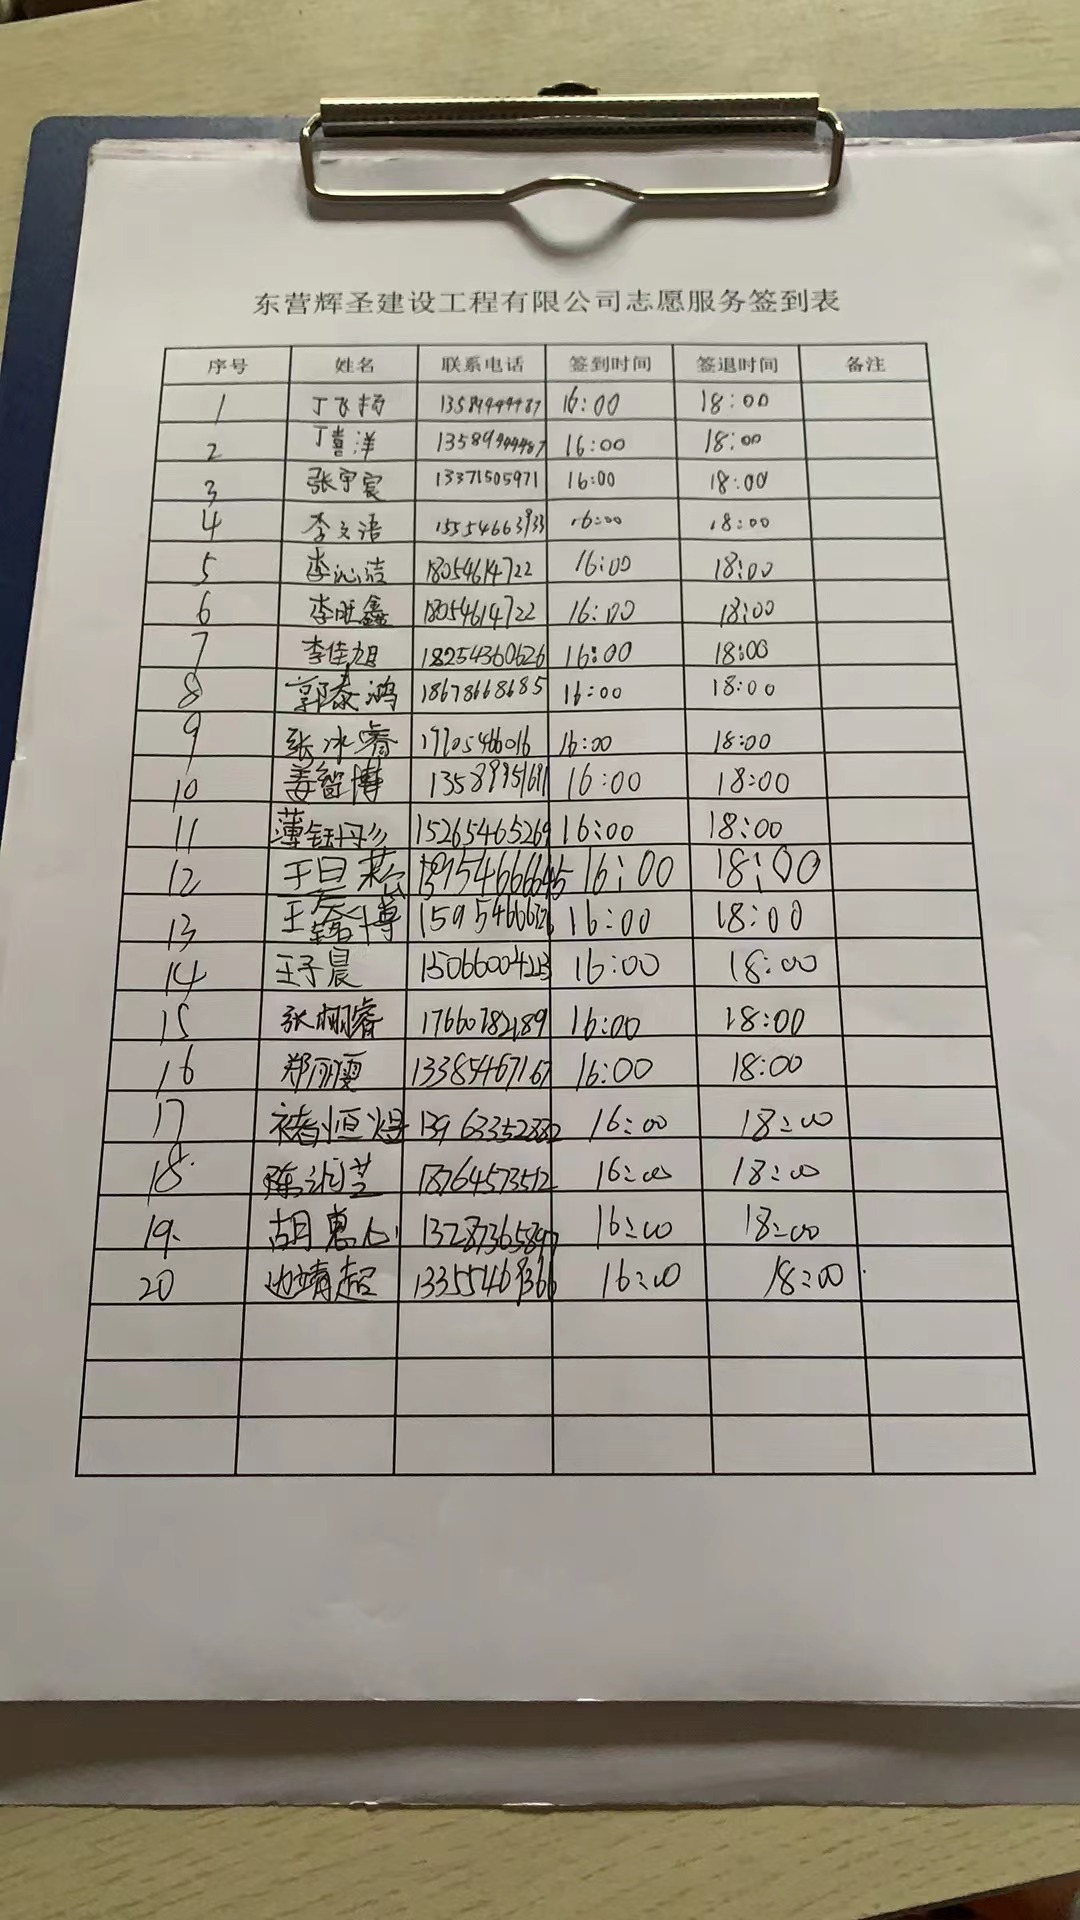 东营辉圣建设工程有限公司志愿服务签到表
序号 姓名 联系电话 签到时间 签退时间 备注
1 丁飞扬 13589999987 16:00 18:00
2 丁喜洋 13589999987 16:00 18:00
3 张宇宸 13371505971 16:00 18:00
4 李文语 15554663933 16:00 18:00
5 李沁洁 18054614722 16:00 18:00
6 李旺鑫 18054614722 16:00 18:00
7 李佳旭 18254360626 16:00 18:00
8 郭泰鸿 18678668685 16:00 18:00
9 张冰睿 17705466016 16:00 18:00
10 姜智博 16:00 18:00
11 薄钰丹 15265465269 16:00 18:00
12 16:00 18:00
13 王鑫博 16:00 18:00
14 王子晨 16:00 18:00
15 张栩睿 17660782189 16:00 18:00
16 郑丽雯 13385467167 16:00 18:00
17 褚恒煜 13963352882 16:00 18:00
18 陈润芝 18764573512 16:00 18:00
19. 胡惠心 13287365897 16:00 18:00
20 边靖超 13355469366 16:00 18:00